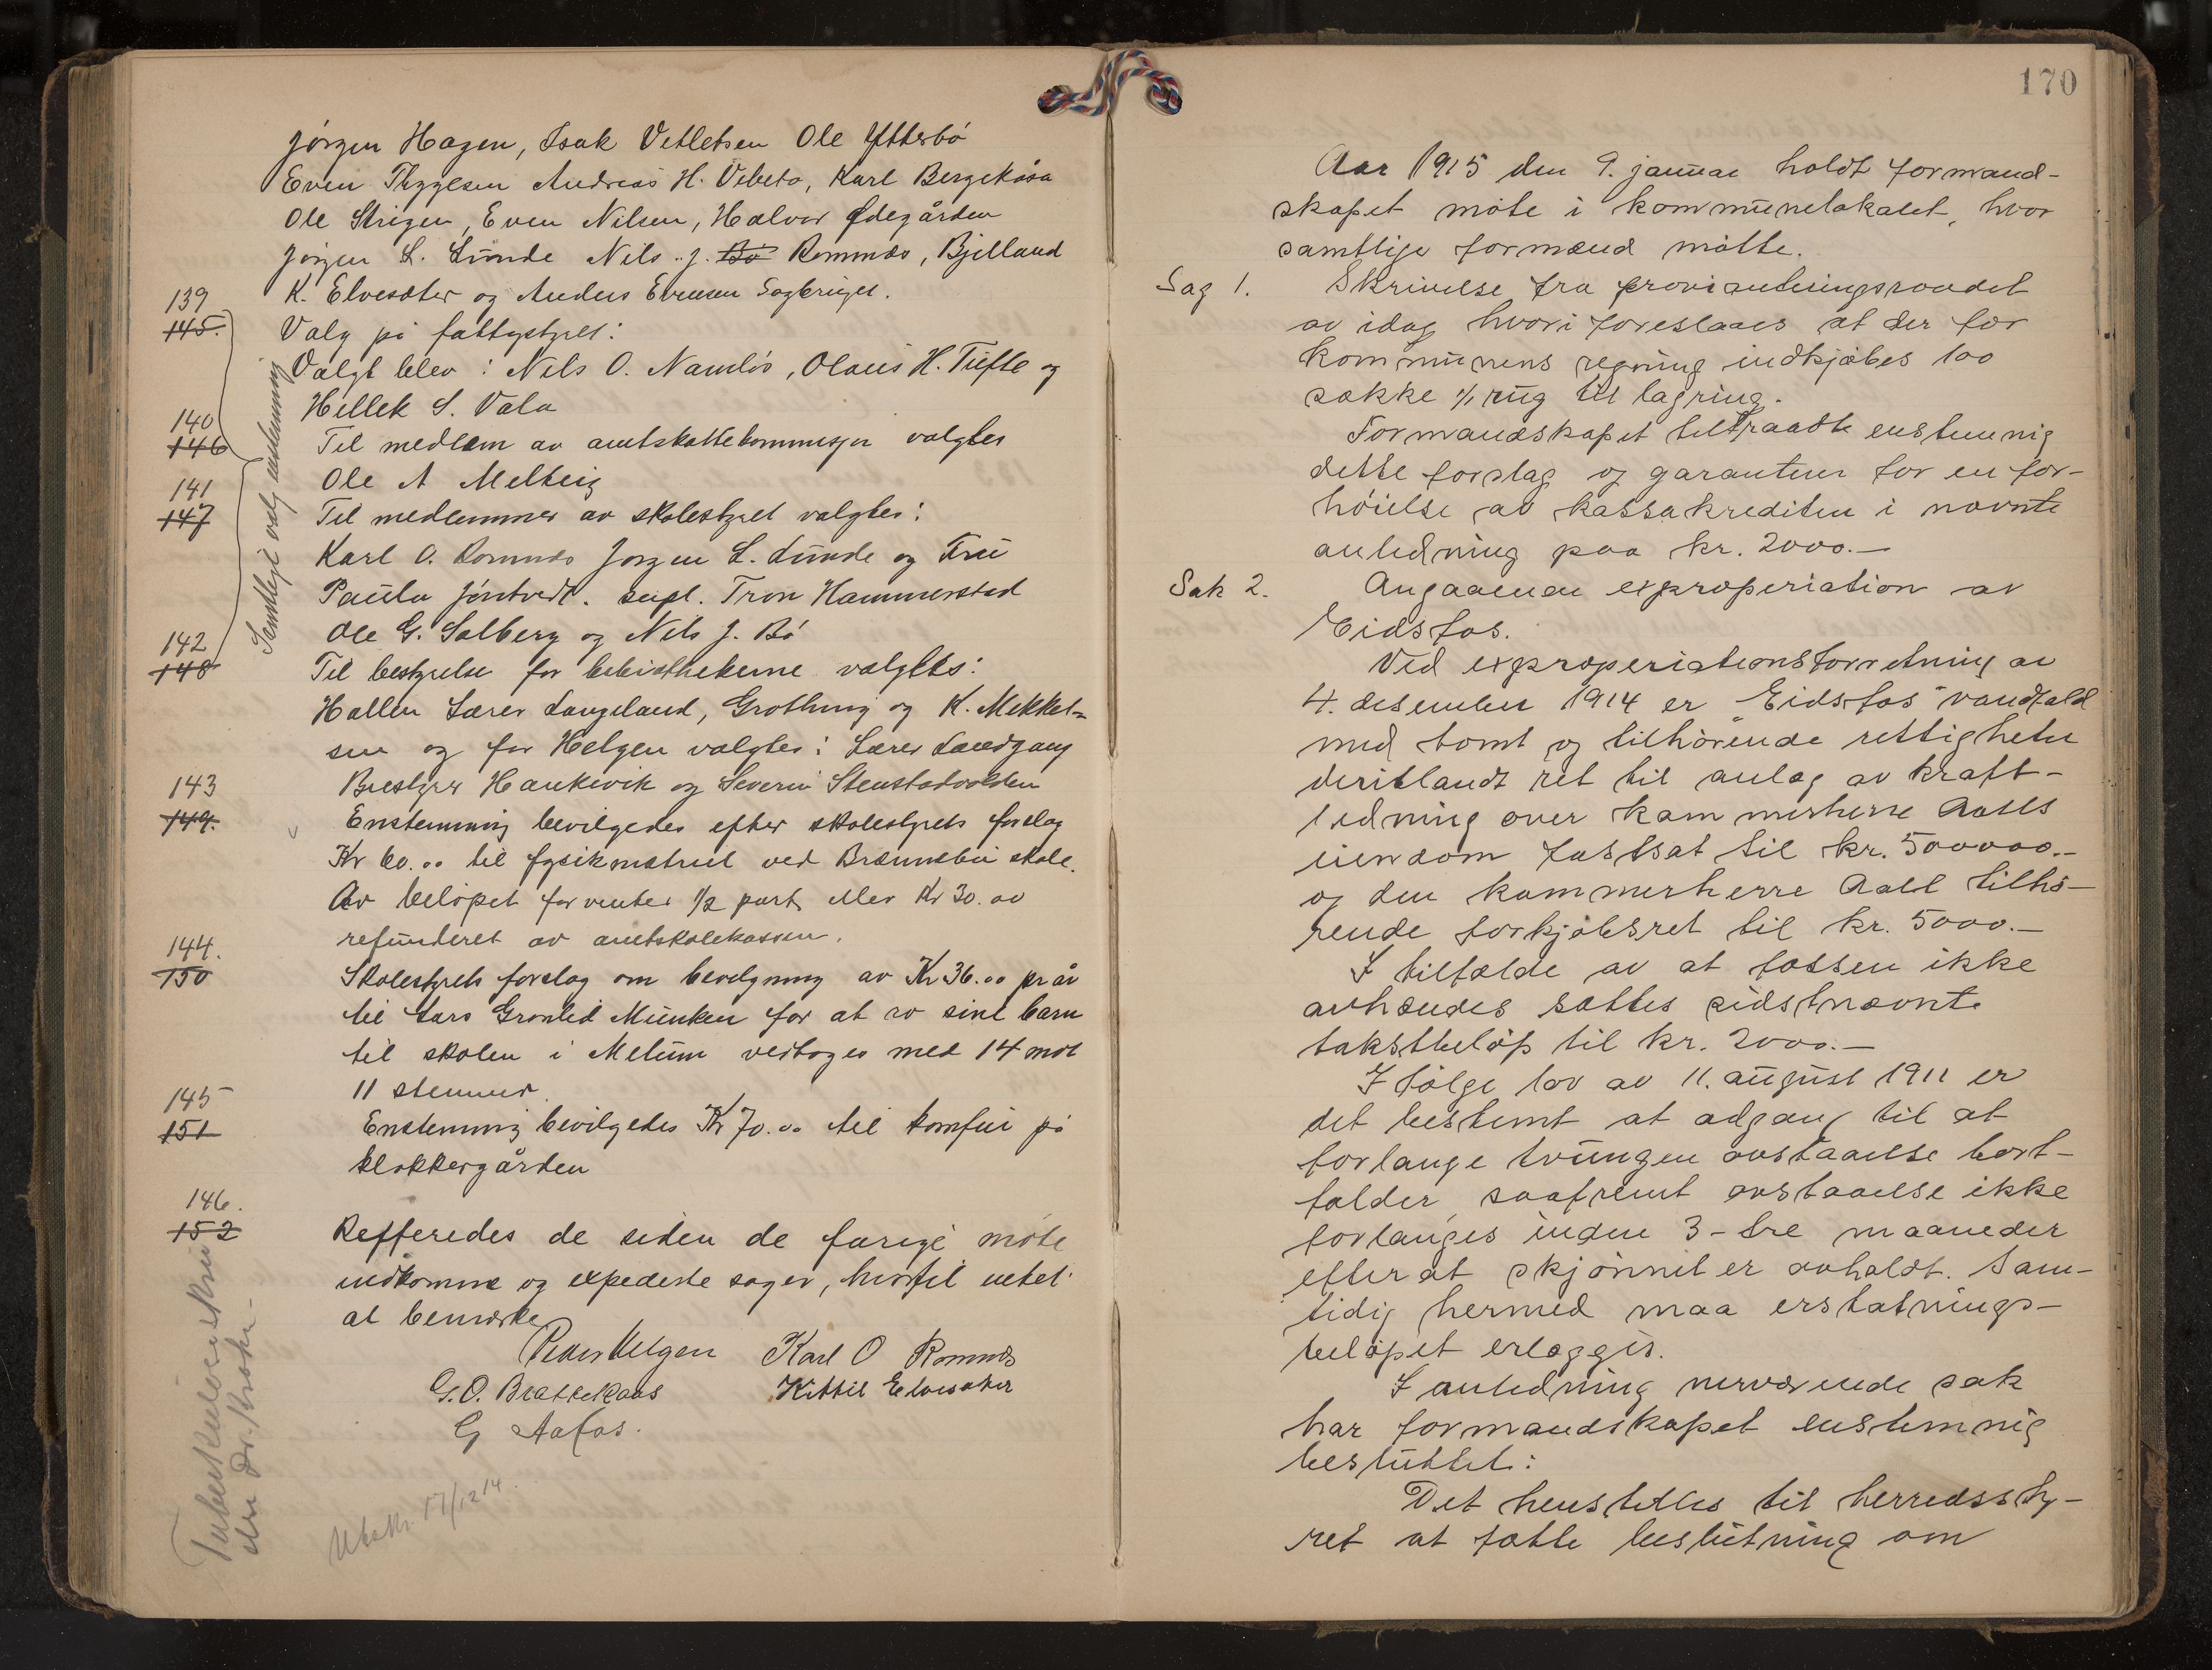 Jörgen Hagen, Isak Vetletsen Ole Ytterbö
Even Thygesen Andreas H. Vibeto, Karl Bergekåsa
Ole Strigen, Even Nilsen, Halvor Ødegården
Jörgen L. Lunde Nils J. Bö Romnes, Bjelland
K. Elvesæter og Anders Evensen Fagbringet.
139
145.
Valg på fattigstyret:
Valgt blev: Nils O. Namlös, Olaus H. Tufte og
Hellek S. Vala
140
146
Til medlem av amtskattekommisjon valgtes
Ole A Melteig
141
147
Til medlemmer av skolestyret valgtes:
Karl O. Romnes Jörgen L. Lunde og Fru
Paula Jöntvedt. supl. Tron Hammerstad
Ole G. Solberg og Nils J. Bö
142
148
Til bestyrelse for bibiothekerne valgtes:
Hallen Lærer Langeland, Grothing og K. Mikkel-
sen og for Helgen valgtes: Lærer Landgang
Brestyrer Haukevik og Severin Stenstadvolden
Samtlige valg enstemmig
143
149.
Enstemmig bevilgedes efter skolestyrets forslag
Kr 60.00 til fysikmatriel ved Brænnebu skole.
Av belöpet forventes 1/2 part eller Kr 30.00
refunderet av amtskolekassen.
144.
150
Skolestyrets forslag om bevilgning av Kr 36.00 pr år
til Lars Gronlid Munken for at ro sine barn
til skolen i Melum vedtoges med 14 mot
11 stemmer.
145
151
Enstemmig bevilgedes Kr 70.00 til komfur på
klokkergården
146.
152
Refferedes de siden de forrige möte
indkomne og expederte sager, hvortil intet
at bemærke
Peder Helgen Karl O Romnes
G. O. Brattekaas Kittil Elvesæter
G Aafos.
Utskr. 17/12 14.
Tuberkuloseskriv
Dr. Krohn
170
Aar 1915 den 9. januar holdt formand-
skapet möte i kommunelokalet, hvor
samtlige formænd mötte.
Sag 1.
Skrivelse fra provianteringsraadet
av idag hvori foreslaaes at der for
kommunens regning indkjöbes 100
sække 1/1 rug til lagring.
Formandskapet tiltraadte enstemmig
dette forslag og garanterer for en for-
höielse av kassakrediten i nævnte
anledning paa kr. 2000.-
Sak 2.
Angaaende exproperiation av
Eidsfos.
Ved exproperiationsforretning av
4. desember 1914 er "Eidsfos" vandfald
med tomt og tilhörende rettigheter
deriblandt ret til anlæg av kraft-
ledning over kammerherre Aalls
eiendom fastsat til kr. 500000.-
og den kammerherre Aall tilhö-
rende forkjöbsret til kr. 5000.-
I tilfælde av at fossen ikke
avhændes sættes sidstnævnte
takstbelöp til kr. 2000.-
I fölge lov av 11. august 1911 er
det bestemt at adgang til at
forlange tvungen avstaaelse bort-
falder, saafremt avstaaelse ikke
forlanges inden 3 - tre maaneder
efter at skjönnet er avholdt. Sam-
tidig hermed maa erstatnings-
belöpet erlægges.
I anledning nærværende sak
har formandskapet enstemmig
besluttet:
Det henstilles til herredssty-
ret at fatte beslutning om